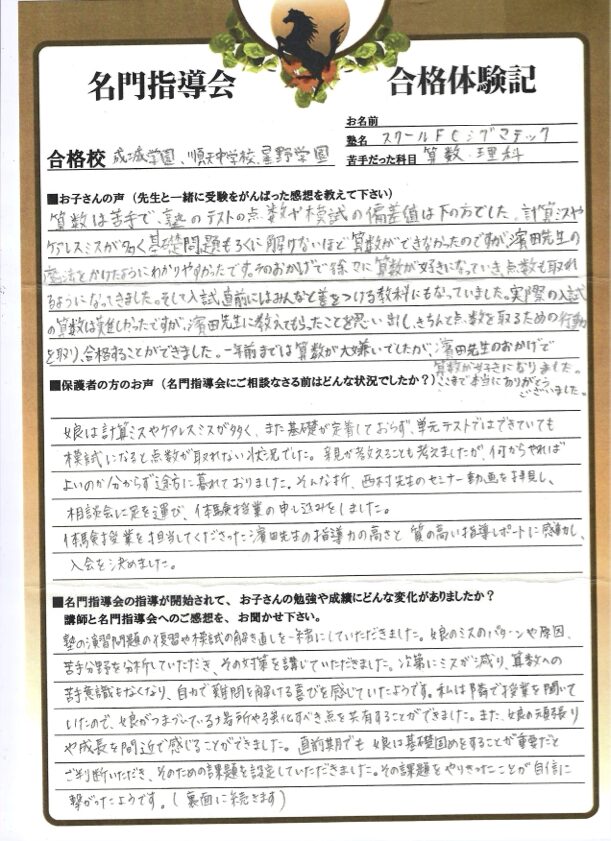 名門指導会 合格体験記
お名前
塾名 スクールFCシグマテック
合格校 成城学園、順天中学校、星野学園
苦手だった科目 算数・理科
■お子さんの声(先生と一緒に受験をがんばった感想を教えて下さい)
算数は苦手で、塾のテストの点数や模試の偏差値は下の方でした。計算ミスや
ケアレスミスが多く基礎問題もろくに解けないほど算数ができなかったのですが、濱田先生の
魔法をかけたようにわかりやすかったです。そのおかげで徐々に算数が好きになっていき点数も取れ
るようになってきました。そして入試直前にはみんなと差をつける教科にもなっていました。実際の入試
の算数は難しかったですが、濱田先生に教えてもらったことを思い出し、きちんと点数を取るための行動
を取り、合格することができました。一年前までは算数が大嫌いでしたが、濱田先生のおかげで
算数が好きになりました。
ここまで本当にありがとう
ございました。
■保護者の方のお声(名門指導会にご相談なさる前はどんな状況でしたか?)
娘は計算ミスやケアレスミスが多く、また基礎が定着しておらず、単元テストではできていても
模試になると点数が取れない状況でした。予見が教えることも考えましたが、何からやれば
よいのか分からず途方に暮れておりました。そんな折、西村先生のセミナー動画を拝見し、
相談会に足を運び、体験授業の申し込みをしました。
体験授業を担当してくださった濱田先生の指導力の高さと質の高い指導レポートに感動し、
入会を決めました。
■名門指導会の指導が開始されて、お子さんの勉強や成績にどんな変化がありましたか?
講師と名門指導会へのご感想を、お聞かせ下さい。
塾の演習問題の復習や模試の解き直しを一緒にしていただきました。娘のミスのパターンや原因、
苦手分野を分析していただき、その対策を講じていただきました。次第にミスが減り、算数への
苦手意識もなくなり、自力で難問を解ける喜びを感じていたようです。私は隣で授業を聞いて
いたので、娘がつまづいている場所や強化すべき点を共有することができました。また、娘の頑張り
や成長を間近で感じることができました。直前期でも娘は基礎固めをすることが重要だと
ご判断いただき、そのための課題を設定していただきました。その課題をやりきったことが自信に
繋がったようです。(裏面に続きます)